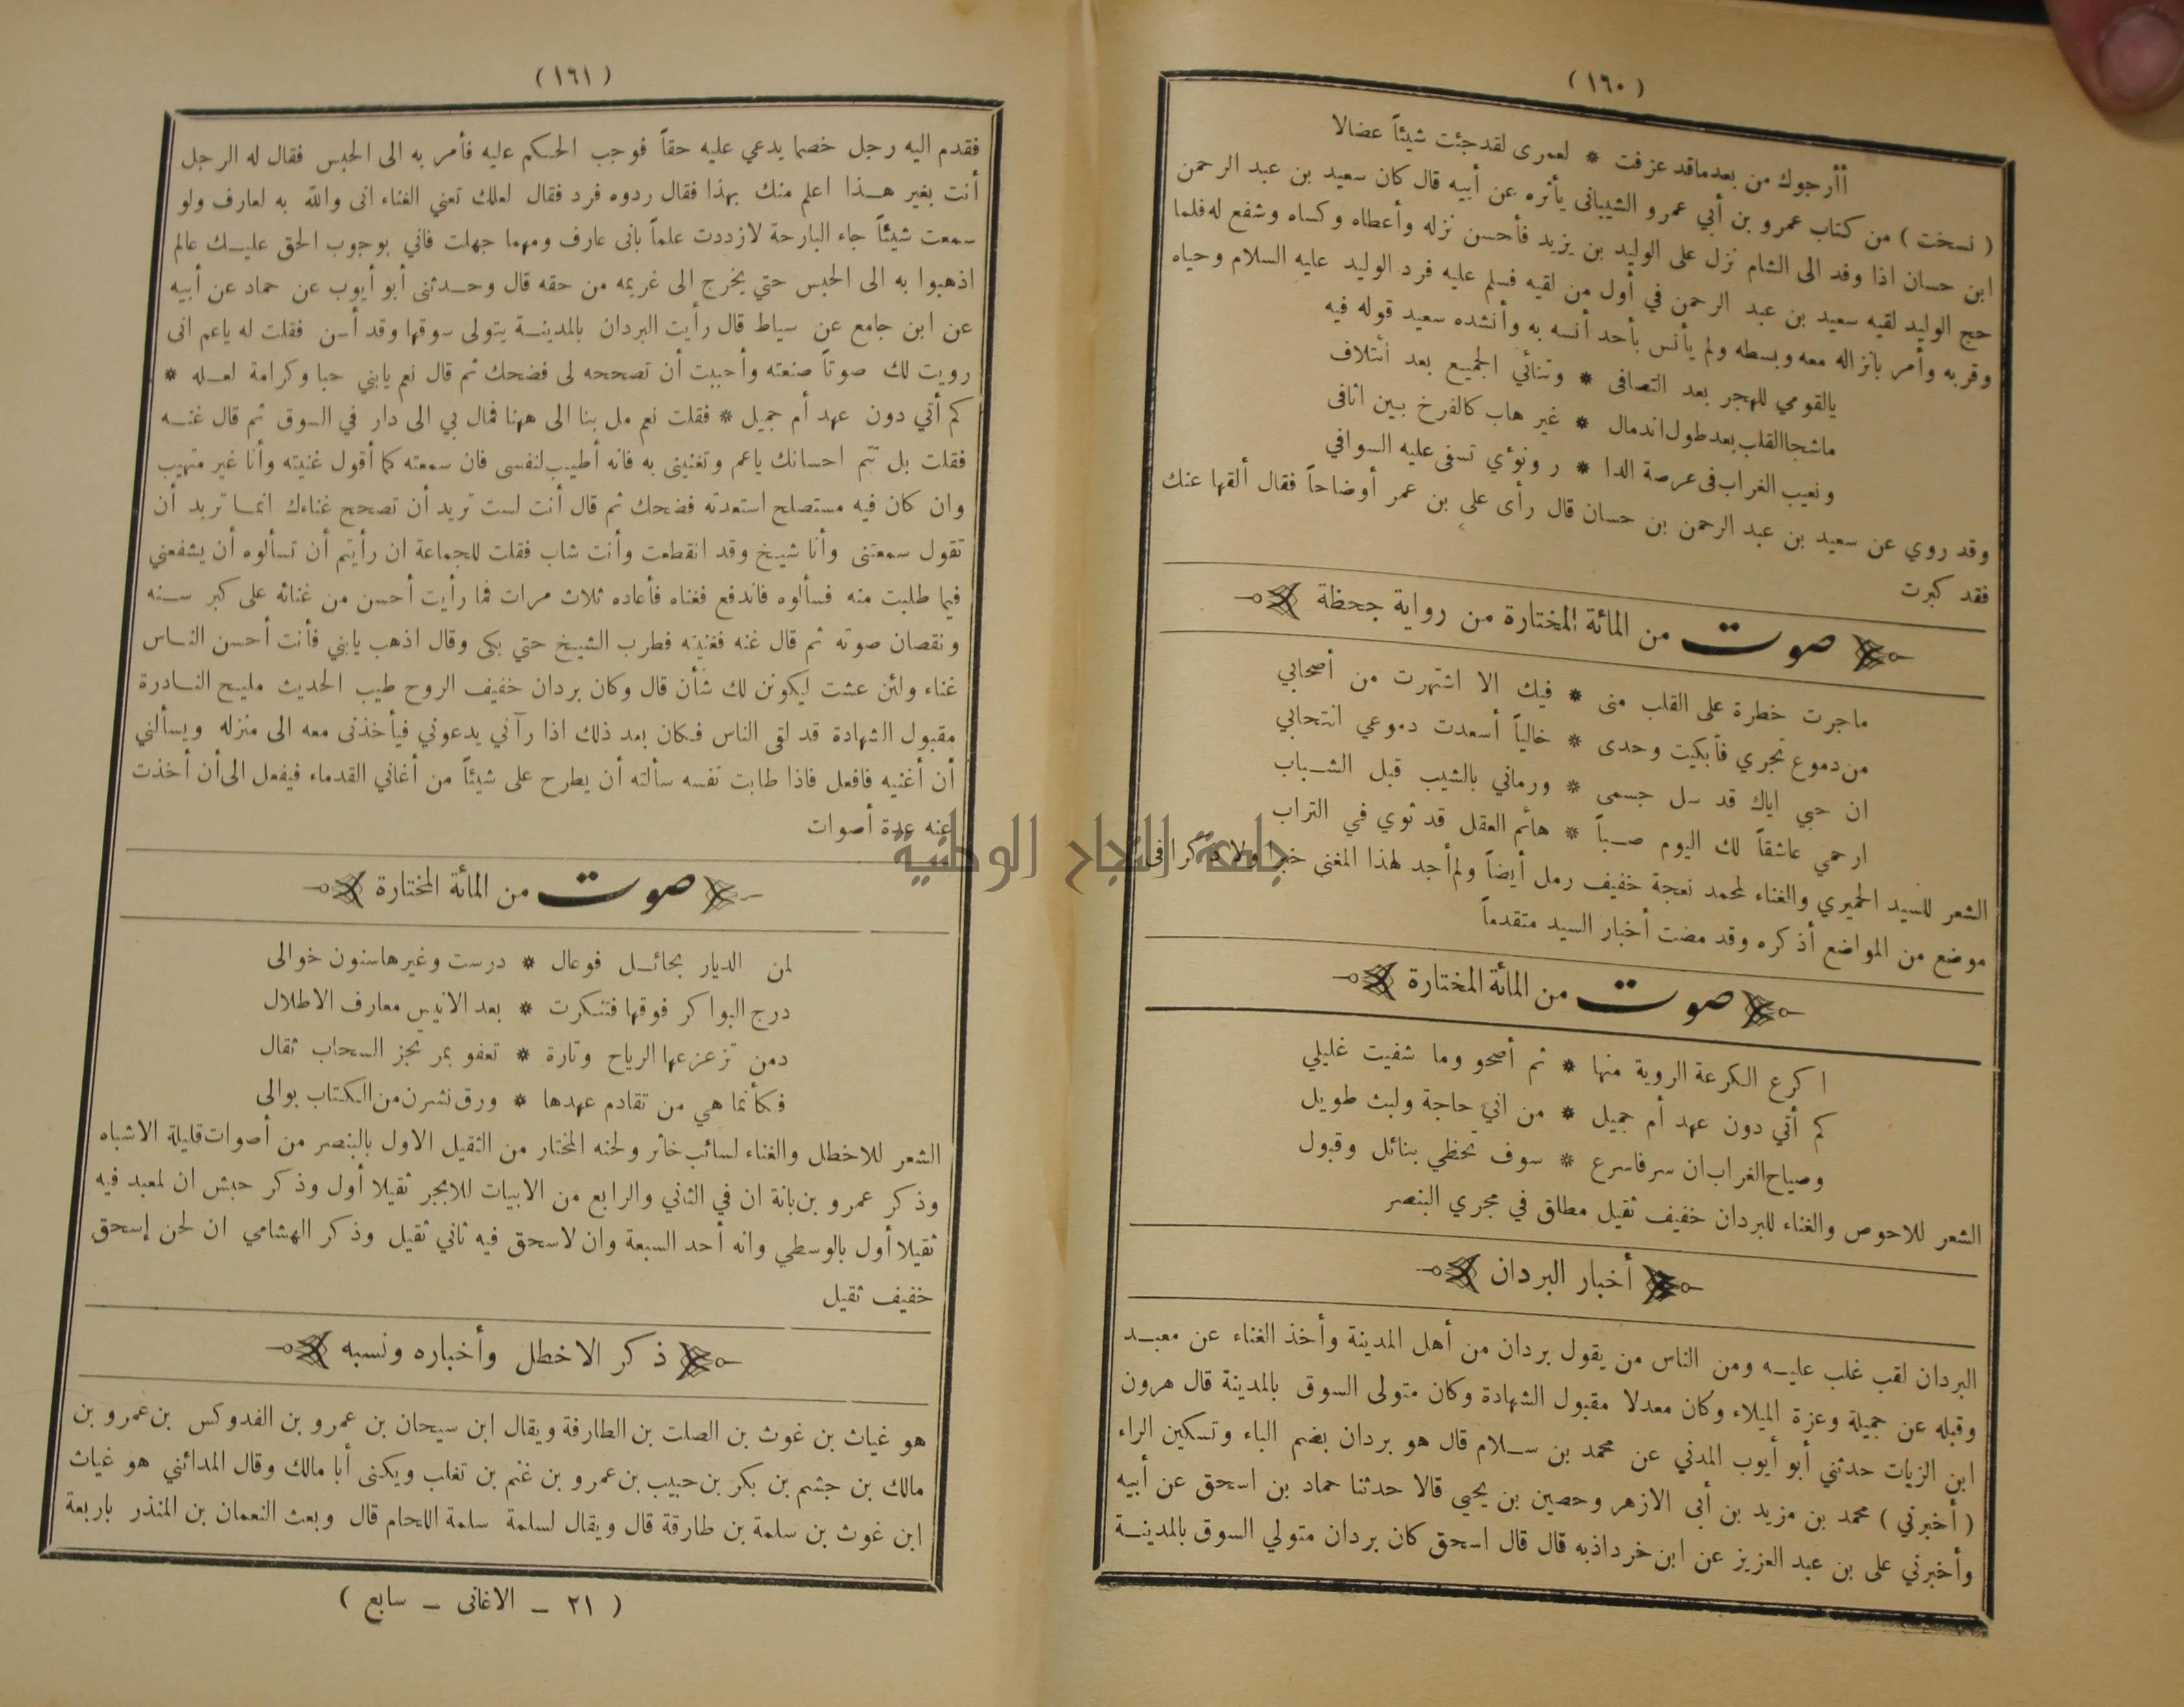 (١٦٠)
أأرجوك من بعد ماقد عزفت * لعمرى لقد جئت شيئاً عضالا
( نسخت ) من كتاب عمرو بن أبي عمرو الشيبانى يأثره عن أبيه قال كان سعيد بن عبد الرحمن
ابن حسان اذا وفد الى الشام نزل على الوليد بن يزيد فأحسن نزله وأعطاه وكساه وشفع له فلما
حج الوليد لقيه سعيد بن عبد الرحمن في أول من لقيه فسلم عليه فرد الوليد عليه السلام وحياه
وقربه وأمر بانزاله معه وبسطه ولم يأنس بأحد أنسه به وأنشده سعيد قوله فيه
يالقومي للهجر بعد التصافى * وتنائي الجميع بعد ائتلاف
ماشجا القلب بعد طول اندمال * غير هاب كالفرخ بين اثافى
ونعيب الغراب فى عرصة الدا * ر ونؤي تسفى عليه السوافي
وقد روي عن سعيد بن عبد الرحمن بن حسان قال رأى على بن عمر أوضاحاً فقال ألقها عنك
فقد كبرت
صوت من المائة المختارة من رواية جحظة
ماجرت خطرة على القلب منى * فيك الا اشتهرت من أصحابي
من دموع تجري فأبكيت وحدى * خالياً أسعدت دموعي انتحابي
ان حبي اياك قد سل جسمى * ورماني بالشيب قبل الشباب
ارحمي عاشقاً لك اليوم صباً * هائم العقل قد ثوي في التراب
الشعر للسيد الحميري والغناء لمحمد نعجة خفيف رمل أيضاً ولم أجد لهذا المغنى خبرا ولا ذكرا فى
موضع من المواضع أذكره وقد مضت أخبار السيد متقدماً
صوت من المائة المختارة
اكرع الكرعة الروية منها * ثم أصحو وما شفيت غليلي
كم أتي دون عهد أم جميل * من اني حاجة ولبث طويل
وصياح الغراب ان سر فاسرع * سوف تحظي بنائل وقبول
الشعر للاحوص والغناء للبردان خفيف ثقيل مطلق في مجري البنصر
أخبار البردان
البردان لقب غلب عليه ومن الناس من يقول بردان من أهل المدينة وأخذ الغناء عن معبد
وقبله عن جميلة وعزة الميلاء وكان معدلا مقبول الشهادة وكان متولى السوق بالمدينة قال هرون
ابن الزيات حدثني أبو أيوب المدني عن محمد بن سلام قال هو بردان بضم الباء وتسكين الراء
( أخبرني ) محمد بن مزيد بن أبى الازهر وحصين بن يحيى قالا حدثنا حماد بن اسحق عن أبيه
وأخبرني على بن عبد العزيز عن ابن خرداذبه قال قال اسحق كان بردان متولي السوق بالمدينة
(١٦١)
فقدم اليه رجل خصما يدعي عليه حقاً فوجب الحكم عليه فأمر به الى الحبس فقال له الرجل
أنت بغير هذا اعلم منك بهذا فقال ردوه فرد فقال لعلك تعني الغناء انى والله به لعارف ولو
سمعت شيئاً جاء البارحة لازددت علماً بانى عارف ومهما جهلت فاني بوجوب الحق عليك عالم
اذهبوا به الى الحبس حتي يخرج الى غريمه من حقه قال وحدثنى أبو أيوب عن حماد عن أبيه
عن ابن جامع عن سياط قال رأيت البردان بالمدينة يتولى سوقها وقد أسن فقلت له ياعم انى
رويت لك صوتاً صنعته وأحببت أن تصححه لى فضحك ثم قال نعم يابني حبا وكرامة لعله *
كم أتي دون عهد أم جميل * فقلت نعم مل بنا الى ههنا فمال بي الى دار في السوق ثم قال غنه
فقلت بل تتم احسانك ياعم وتغنينى به فانه أطيب لنفسى فان سمعته كما أقول غنيته وأنا غير متهيب
وان كان فيه مستصلح استعدته فضحك ثم قال أنت لست تريد أن تصحح غناءك انما تريد أن
تقول سمعتنى وأنا شيخ وقد انقطعت وأنت شاب فقلت للجماعة ان رأيتم أن تسألوه أن يشفعني
فيما طلبت منه فسألوه فاندفع فغناه فأعاده ثلاث مرات فما رأيت أحسن من غنائه على كبر سنه
ونقصان صوته ثم قال غنه فغنيته فطرب الشيخ حتي بكى وقال اذهب يابني فأنت أحسن الناس
غناء ولئن عشت ليكونن لك شأن قال وكان بردان خفيف الروح طيب الحديث مليح النادرة
مقبول الشهادة قد لقى الناس فكان بعد ذلك اذا رآني يدعوني فيأخذنى معه الى منزله ويسألني
أن أغنيه فافعل فاذا طابت نفسه سألته أن يطرح على شيئاً من أغاني القدماء فيفعل الى أن أخذت
عنه عدة أصوات
صوت من المائة المختارة
لمن الديار بحائل فوعال * درست وغيرها سنون خوالى
درج البواكر فوقها فتنكرت * بعد الانيس معارف الاطلال
دمن تزعزعها الرياح وتارة * تعفو بمر تجز السحاب ثقال
فكأنما هي من تقادم عهدها * ورق نشرن من الكتاب بوالى
الشعر للاخطل والغناء لسائب خاثر ولحنه المختار من الثقيل الاول بالبنصر من أصوات قليلة الاشباه
وذكر عمرو بن بانة ان في الثاني والرابع من الابيات للابجر ثقيلا أول وذكر حبش ان لمعبد فيه
ثقيلا أول بالوسطي وانه أحد السبعة وان لاسحق فيه ثاني ثقيل وذكر الهشامي ان لحن إسحق
خفيف ثقيل
ذكر الاخطل وأخباره ونسبه
هو غياث بن غوث بن الصلت بن الطارقة ويقال ابن سيحان بن عمرو بن الفدوكس بن عمرو بن
مالك بن جشم بن بكر بن حبيب بن عمرو بن غنم بن تغلب ويكنى أبا مالك وقال المدائني هو غياث
ابن غوث بن سلمة بن طارقة قال ويقال لسلمة سلمة اللحام قال وبعث النعمان بن المنذر باربعة
( ٢١ – الاغانى – سابع )
جامعة النجاح الوطنية